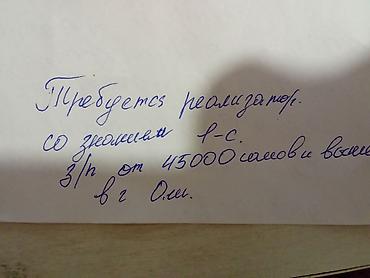 Требуется реализатор.
со знанием 1-с.
З/п от 45000 сомов и выше
в г Ош.